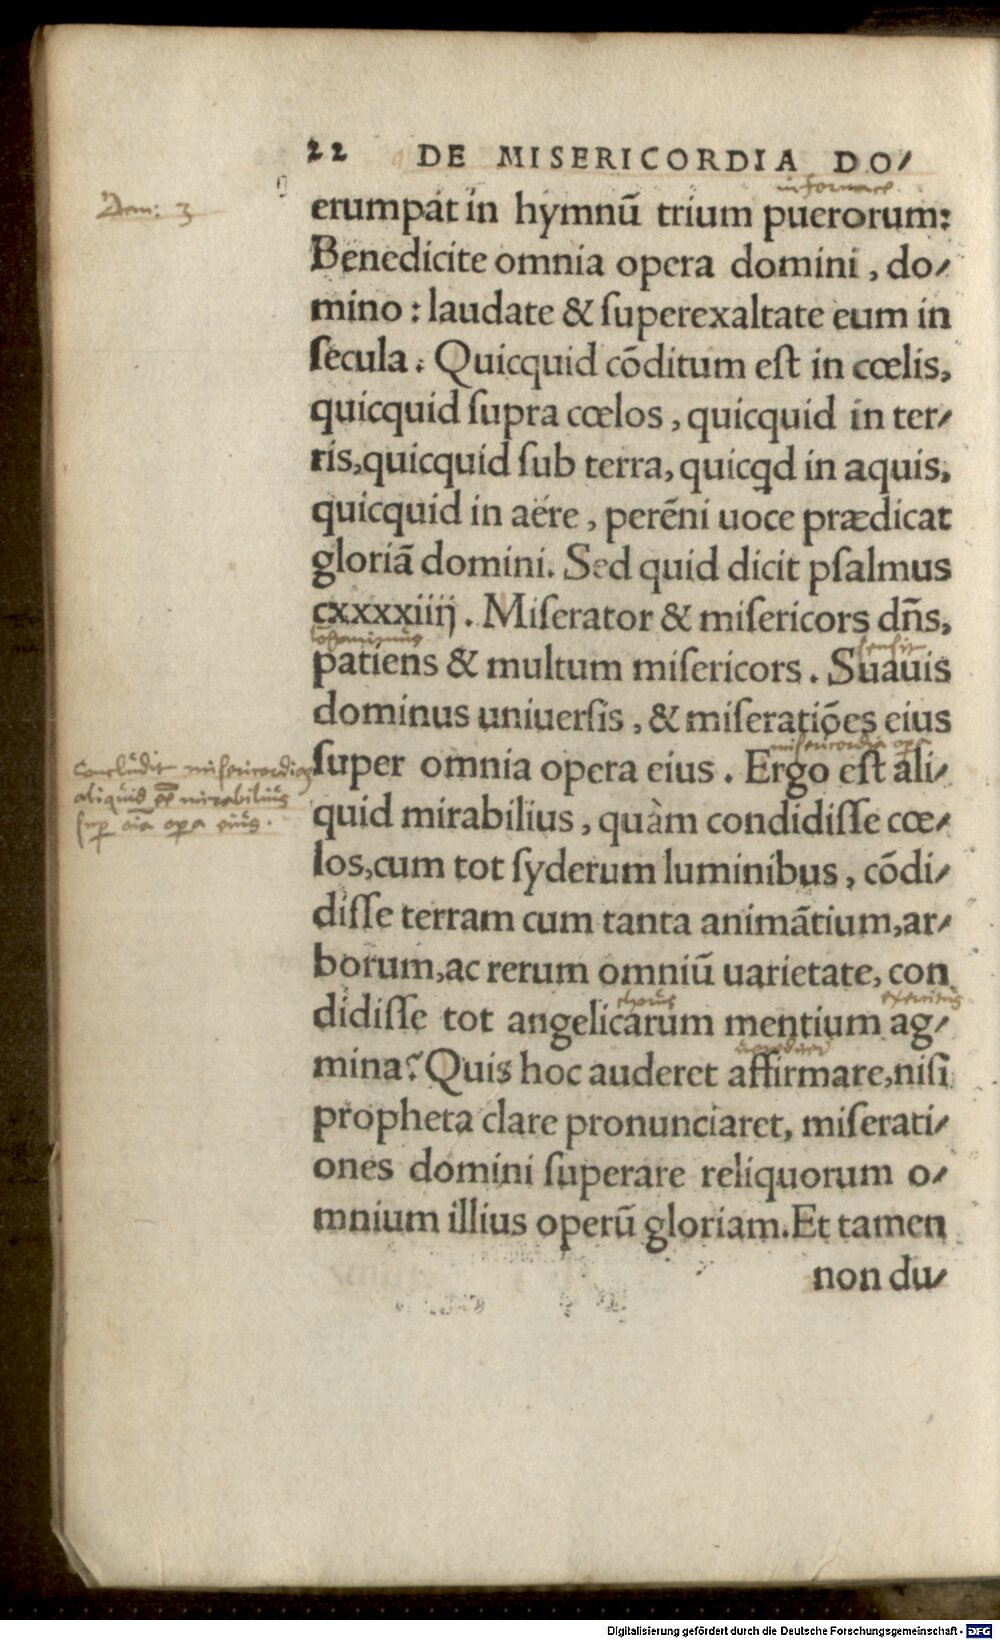 22 DE MISERICORDIA DO/
Dan: 3
in fornace
erumpāt in hymnū trium puerorum:
Benedicite omnia opera domini, do/
mino: laudate & ſuperexaltate eum in
ſecula: Quicquid cōditum eſt in cœlis,
quicquid ſupra cœlos, quicquid in ter/
ris, quicquid ſub terra, quicqd in aquis,
quicquid in aëre, perēni uoce prædicat
gloriā domini. Sed quid dicit pſalmus
cxxxxiiij. Miſerator & miſericors dn̄s,
patiens & multum miſericors. Suauis
dominus uniuerſis, & miſeratiōes eius
ſuper omnia opera eius. Ergo eſt ali/
Concludit misericordiā
aliquid eē mirabilius
sup oīa opa eius.
quid mirabilius, quàm condidiſſe cœ/
los, cum tot ſyderum luminibus, cōdi/
diſſe terram cum tanta animātium, ar/
borum, ac rerum omniū uarietate, con
exercitus
didiſſe tot angelicarum mentium ag/
mina? Quis hoc auderet affirmare, niſi
propheta clare pronunciaret, miſerati/
ones domini ſuperare reliquorum o/
mnium illius operū gloriam. Et tamen
non du/
Digitalisierung gefördert durch die Deutsche Forschungsgemeinschaft - DFG